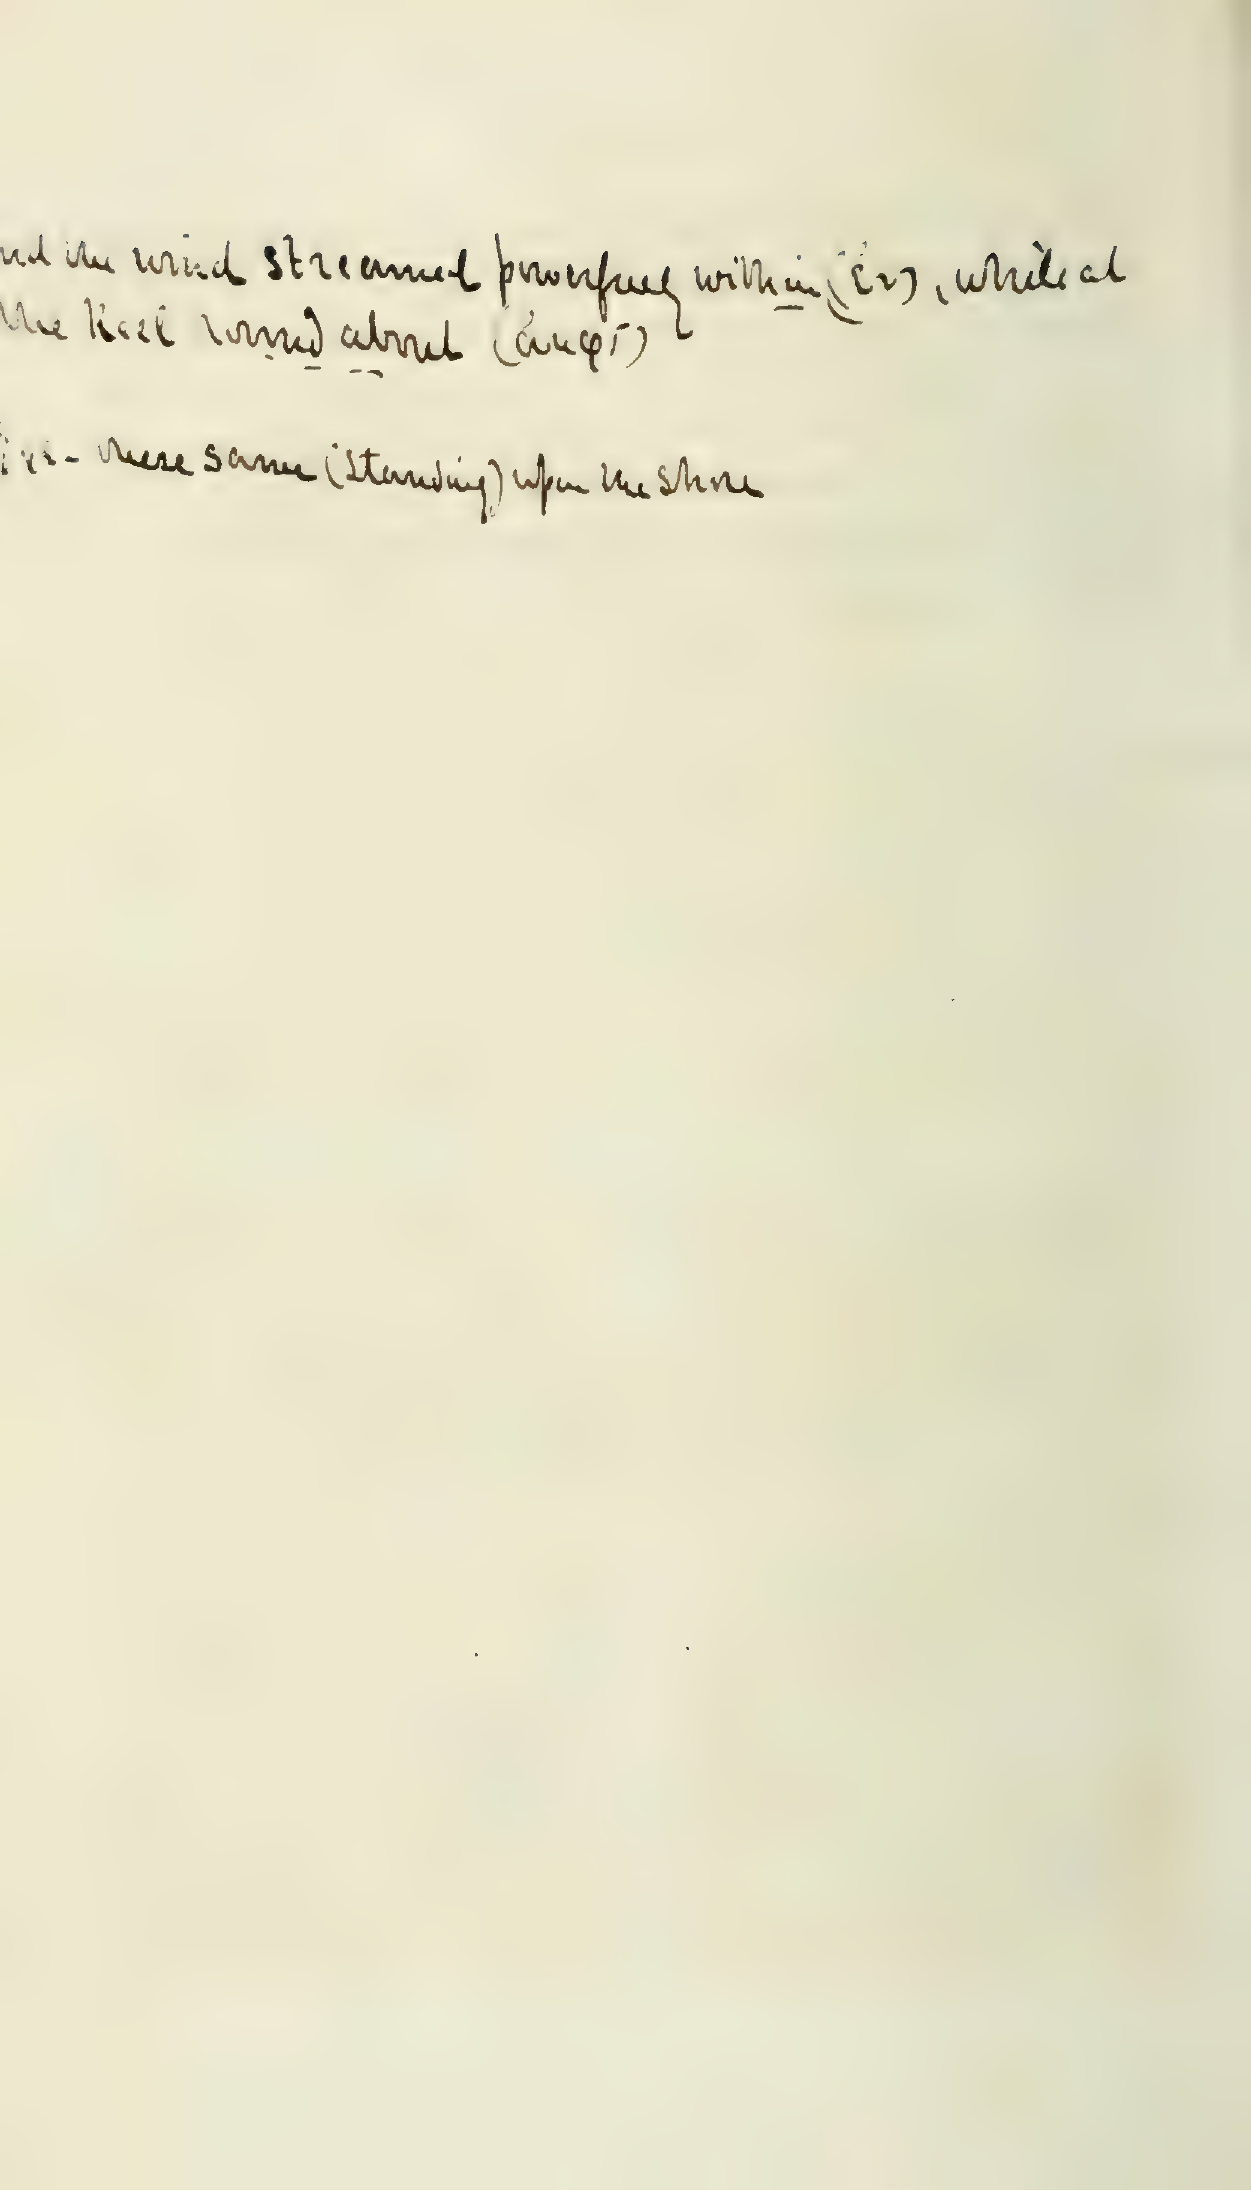 nd the wind streamed powerfully within (ἐν), while at
the keel round about (ἀμφὶ)
these same (standing) upon the shore